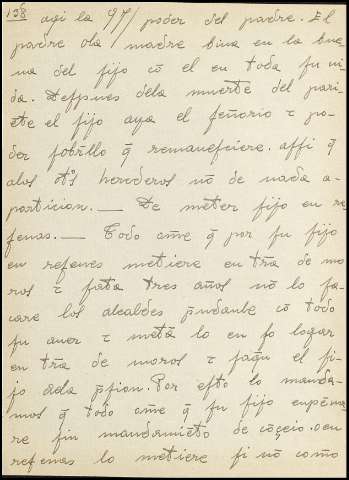 138 aqi la 97/ poder del padre. El
padre ola madre biua en la bue-
na del fijo cõ el en toda fu ui-
da. Deffpues dela muerte del pari-
ẽte el fijo aya el feñorio τ po-
der fobrllo q̃ remanefciere. affi q̃
alos otᵒs herederos nõ de nada a-
particion. — De meter fijo en re-
fenas. — Todo ome q̃ por fu fijo
en refenes metiere en trã de mo-
ros τ fata tres años nõ lo fa-
care los alcaldes p̃ndanle cõ todo
fu auer τ metã lo en fo logar
en trã de moros τ faq̃n el fi-
jo dela p̃fion. Por efto lo manda-
mos q̃ todo ome q̃ fu fijo enpẽna-
re fin mandamiẽto de cõceio. oen
refenas lo metiere fi nõ como